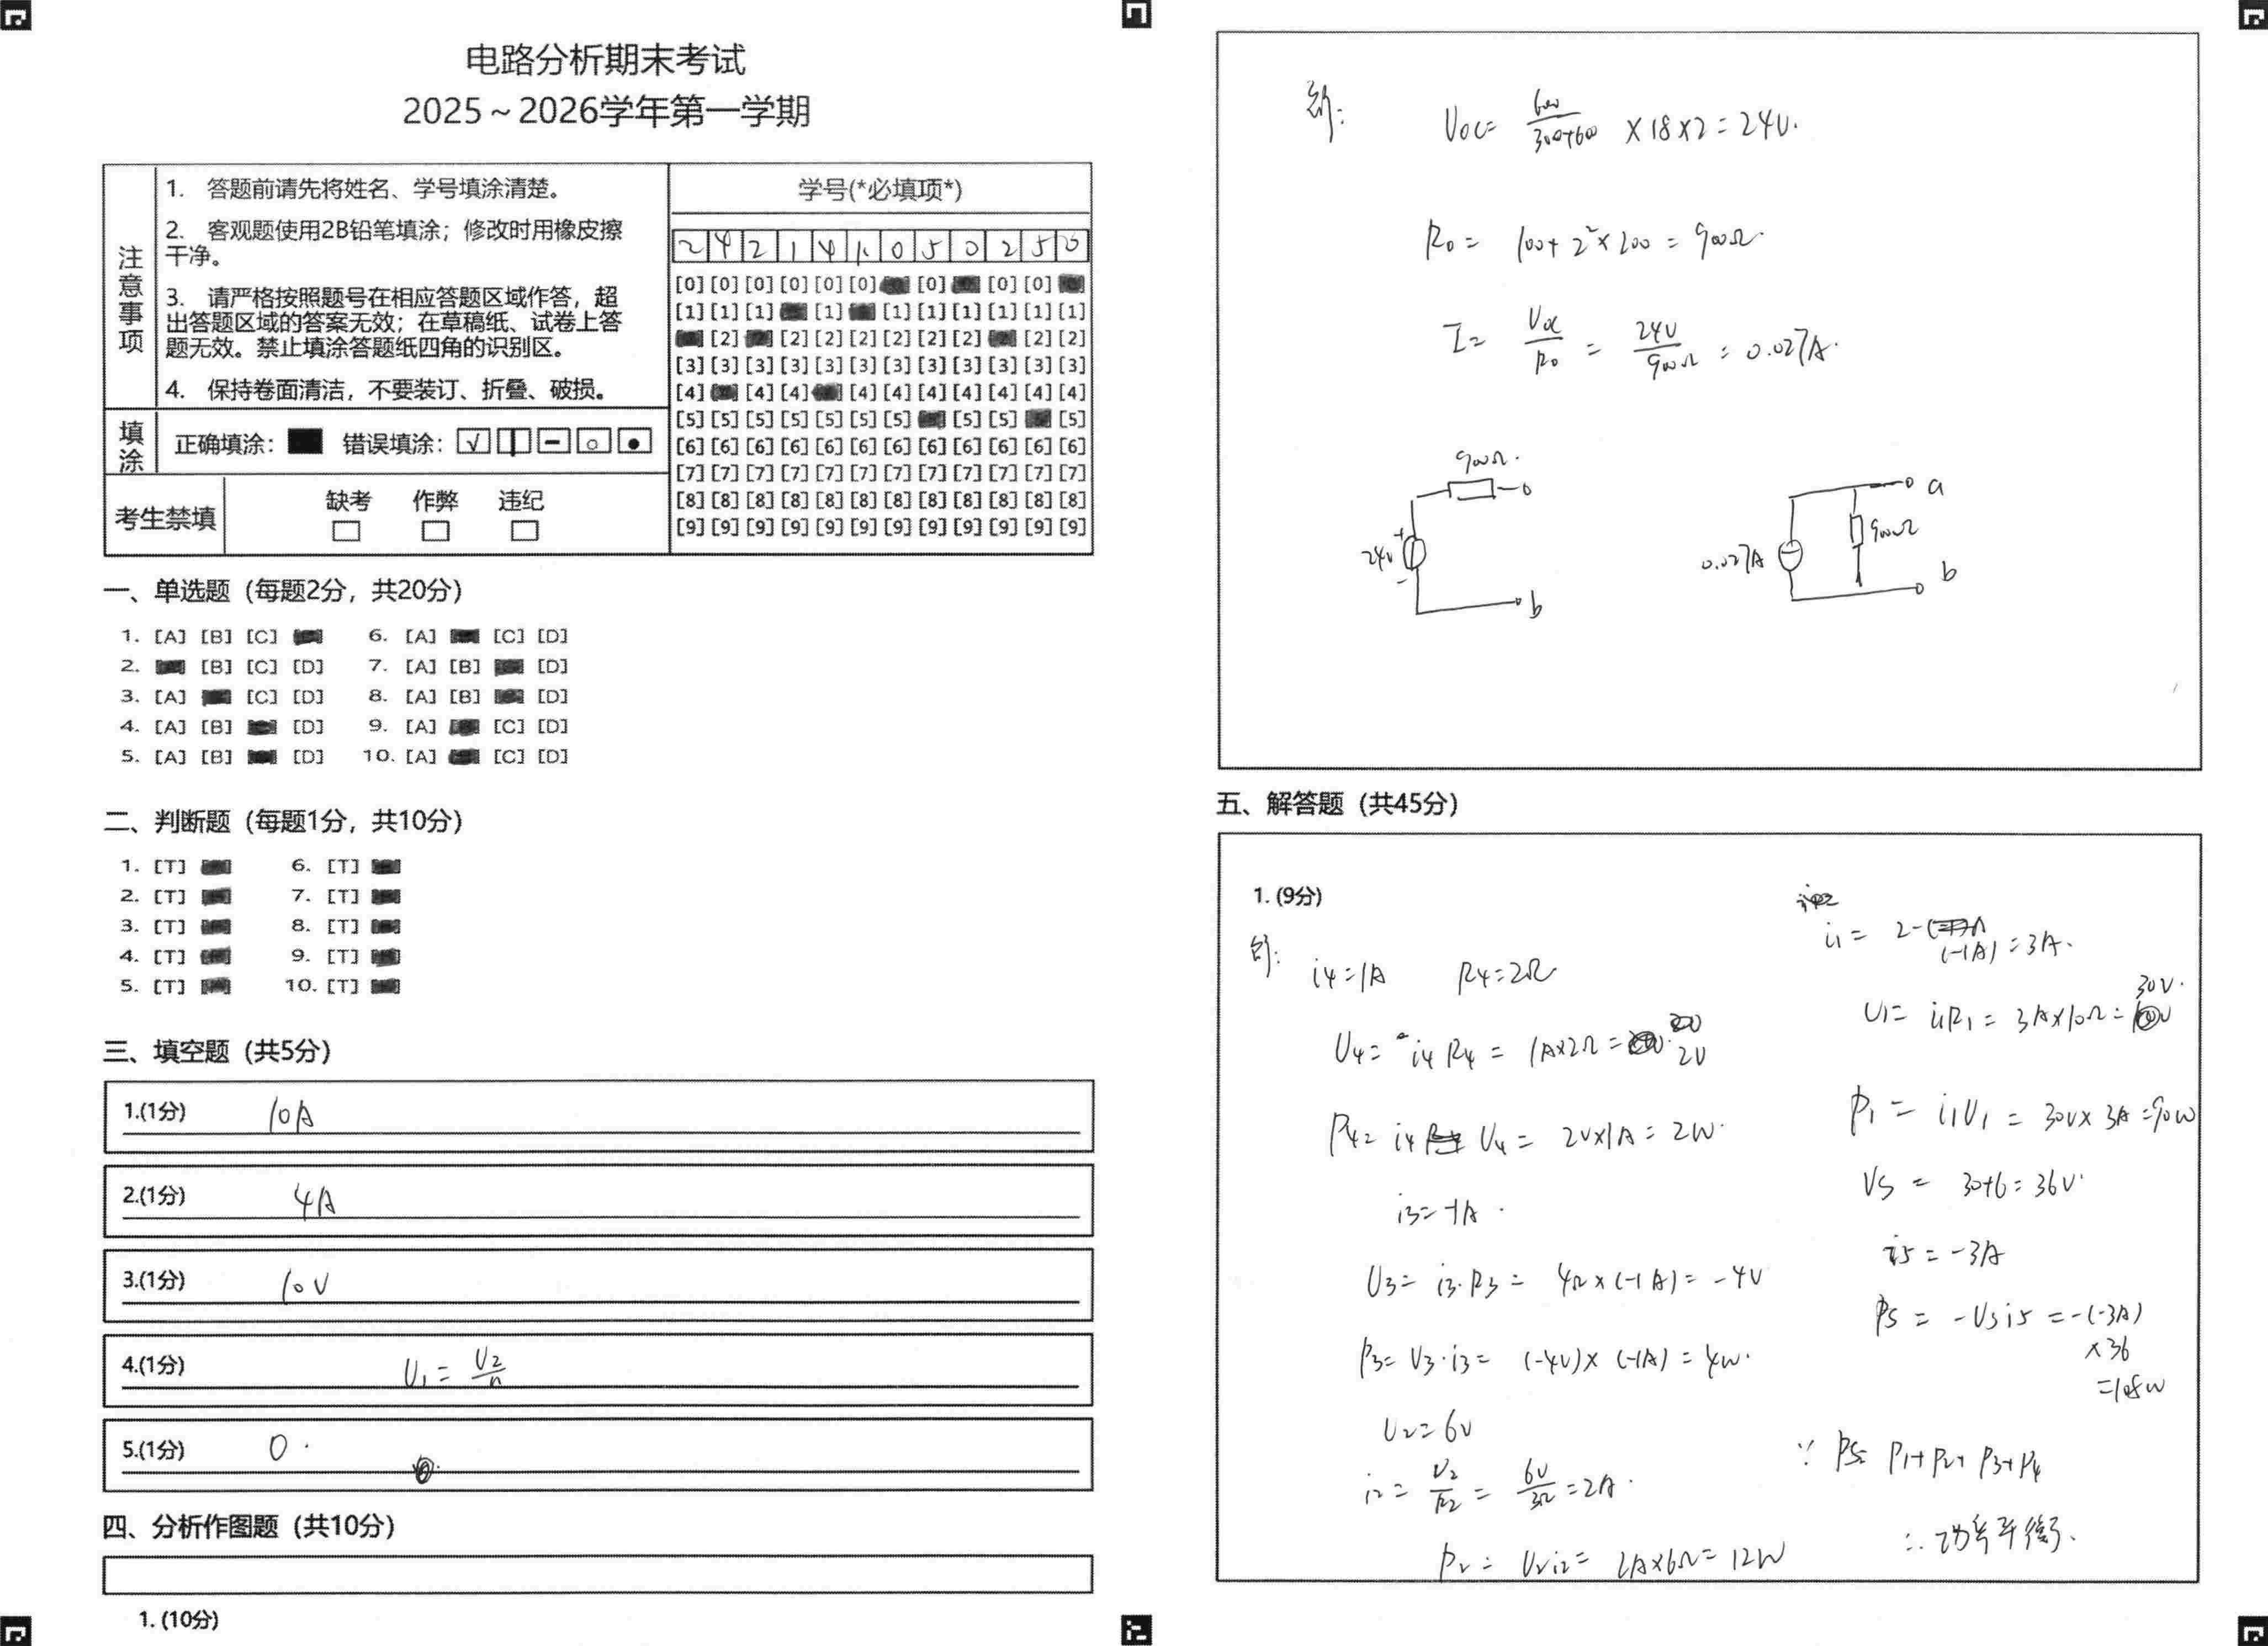 电路分析期末考试
2025～2026学年第一学期
注意事项
1. 答题前请先将姓名、学号填涂清楚。
2. 客观题使用2B铅笔填涂；修改时用橡皮擦
干净。
3. 请严格按照题号在相应答题区域作答，超
出答题区域的答案无效；在草稿纸、试卷上答
题无效。禁止填涂答题纸四角的识别区。
4. 保持卷面清洁，不要装订、折叠、破损。
填涂 正确填涂： 错误填涂：
考生禁填 缺考 作弊 违纪
学号(*必填项*)
2 4 2 1 4 1 0 5 0 2 5 0
[0] [0] [0] [0] [0] [0] [0] [0] [0]
[1] [1] [1] [1] [1] [1] [1] [1] [1] [1]
[2] [2] [2] [2] [2] [2] [2] [2] [2]
[3] [3] [3] [3] [3] [3] [3] [3] [3] [3] [3] [3]
[4] [4] [4] [4] [4] [4] [4] [4] [4] [4]
[5] [5] [5] [5] [5] [5] [5] [5] [5] [5]
[6] [6] [6] [6] [6] [6] [6] [6] [6] [6] [6] [6]
[7] [7] [7] [7] [7] [7] [7] [7] [7] [7] [7] [7]
[8] [8] [8] [8] [8] [8] [8] [8] [8] [8] [8] [8]
[9] [9] [9] [9] [9] [9] [9] [9] [9] [9] [9] [9]
一、单选题（每题2分，共20分）
1. [A] [B] [C] 6. [A] [C] [D]
2. [B] [C] [D] 7. [A] [B] [D]
3. [A] [C] [D] 8. [A] [B] [D]
4. [A] [B] [D] 9. [A] [C] [D]
5. [A] [B] [D] 10. [A] [C] [D]
二、判断题（每题1分，共10分）
1. [T] 6. [T]
2. [T] 7. [T]
3. [T] 8. [T]
4. [T] 9. [T]
5. [T] 10. [T]
三、填空题（共5分）
1.(1分) 10A
2.(1分) 4A
3.(1分) 10V
4.(1分) U₁ = U₂/n
5.(1分) 0.
四、分析作图题（共10分）
1. (10分)
解：
Uoc = 600/(300+600) × 18 × 2 = 24V.
R₀ = 100 + 2² × 200 = 900Ω.
I = Uoc/R₀ = 24V/900Ω = 0.027A.
900Ω.
24V + -
b
0.027A
900Ω
a
b
五、解答题（共45分）
1. (9分)
解：
i4 = 1A R4 = 2Ω
U4 = i4 R4 = 1A×2Ω = 2V
P4 = i4 U4 = 2V×1A = 2W.
i3 = -1A.
U3 = i3·R3 = 4Ω × (-1A) = -4V
P3 = U3·i3 = (-4V) × (-1A) = 4W.
U2 = 6V
i2 = U2/R2 = 6V/3Ω = 2A.
P2 = U2i2 = 2A×6Ω = 12W
i1 = 2-(-1A) = 3A.
U1 = i1R1 = 3A×10Ω = 30V.
P1 = i1U1 = 30V × 3A = 90W
US = 30+6 = 36V.
i5 = -3A
P5 = -U5i5 = -(-3A)
×36
=108W
∵ P5 = P1+P2+P3+P4
∴ 功率平衡.